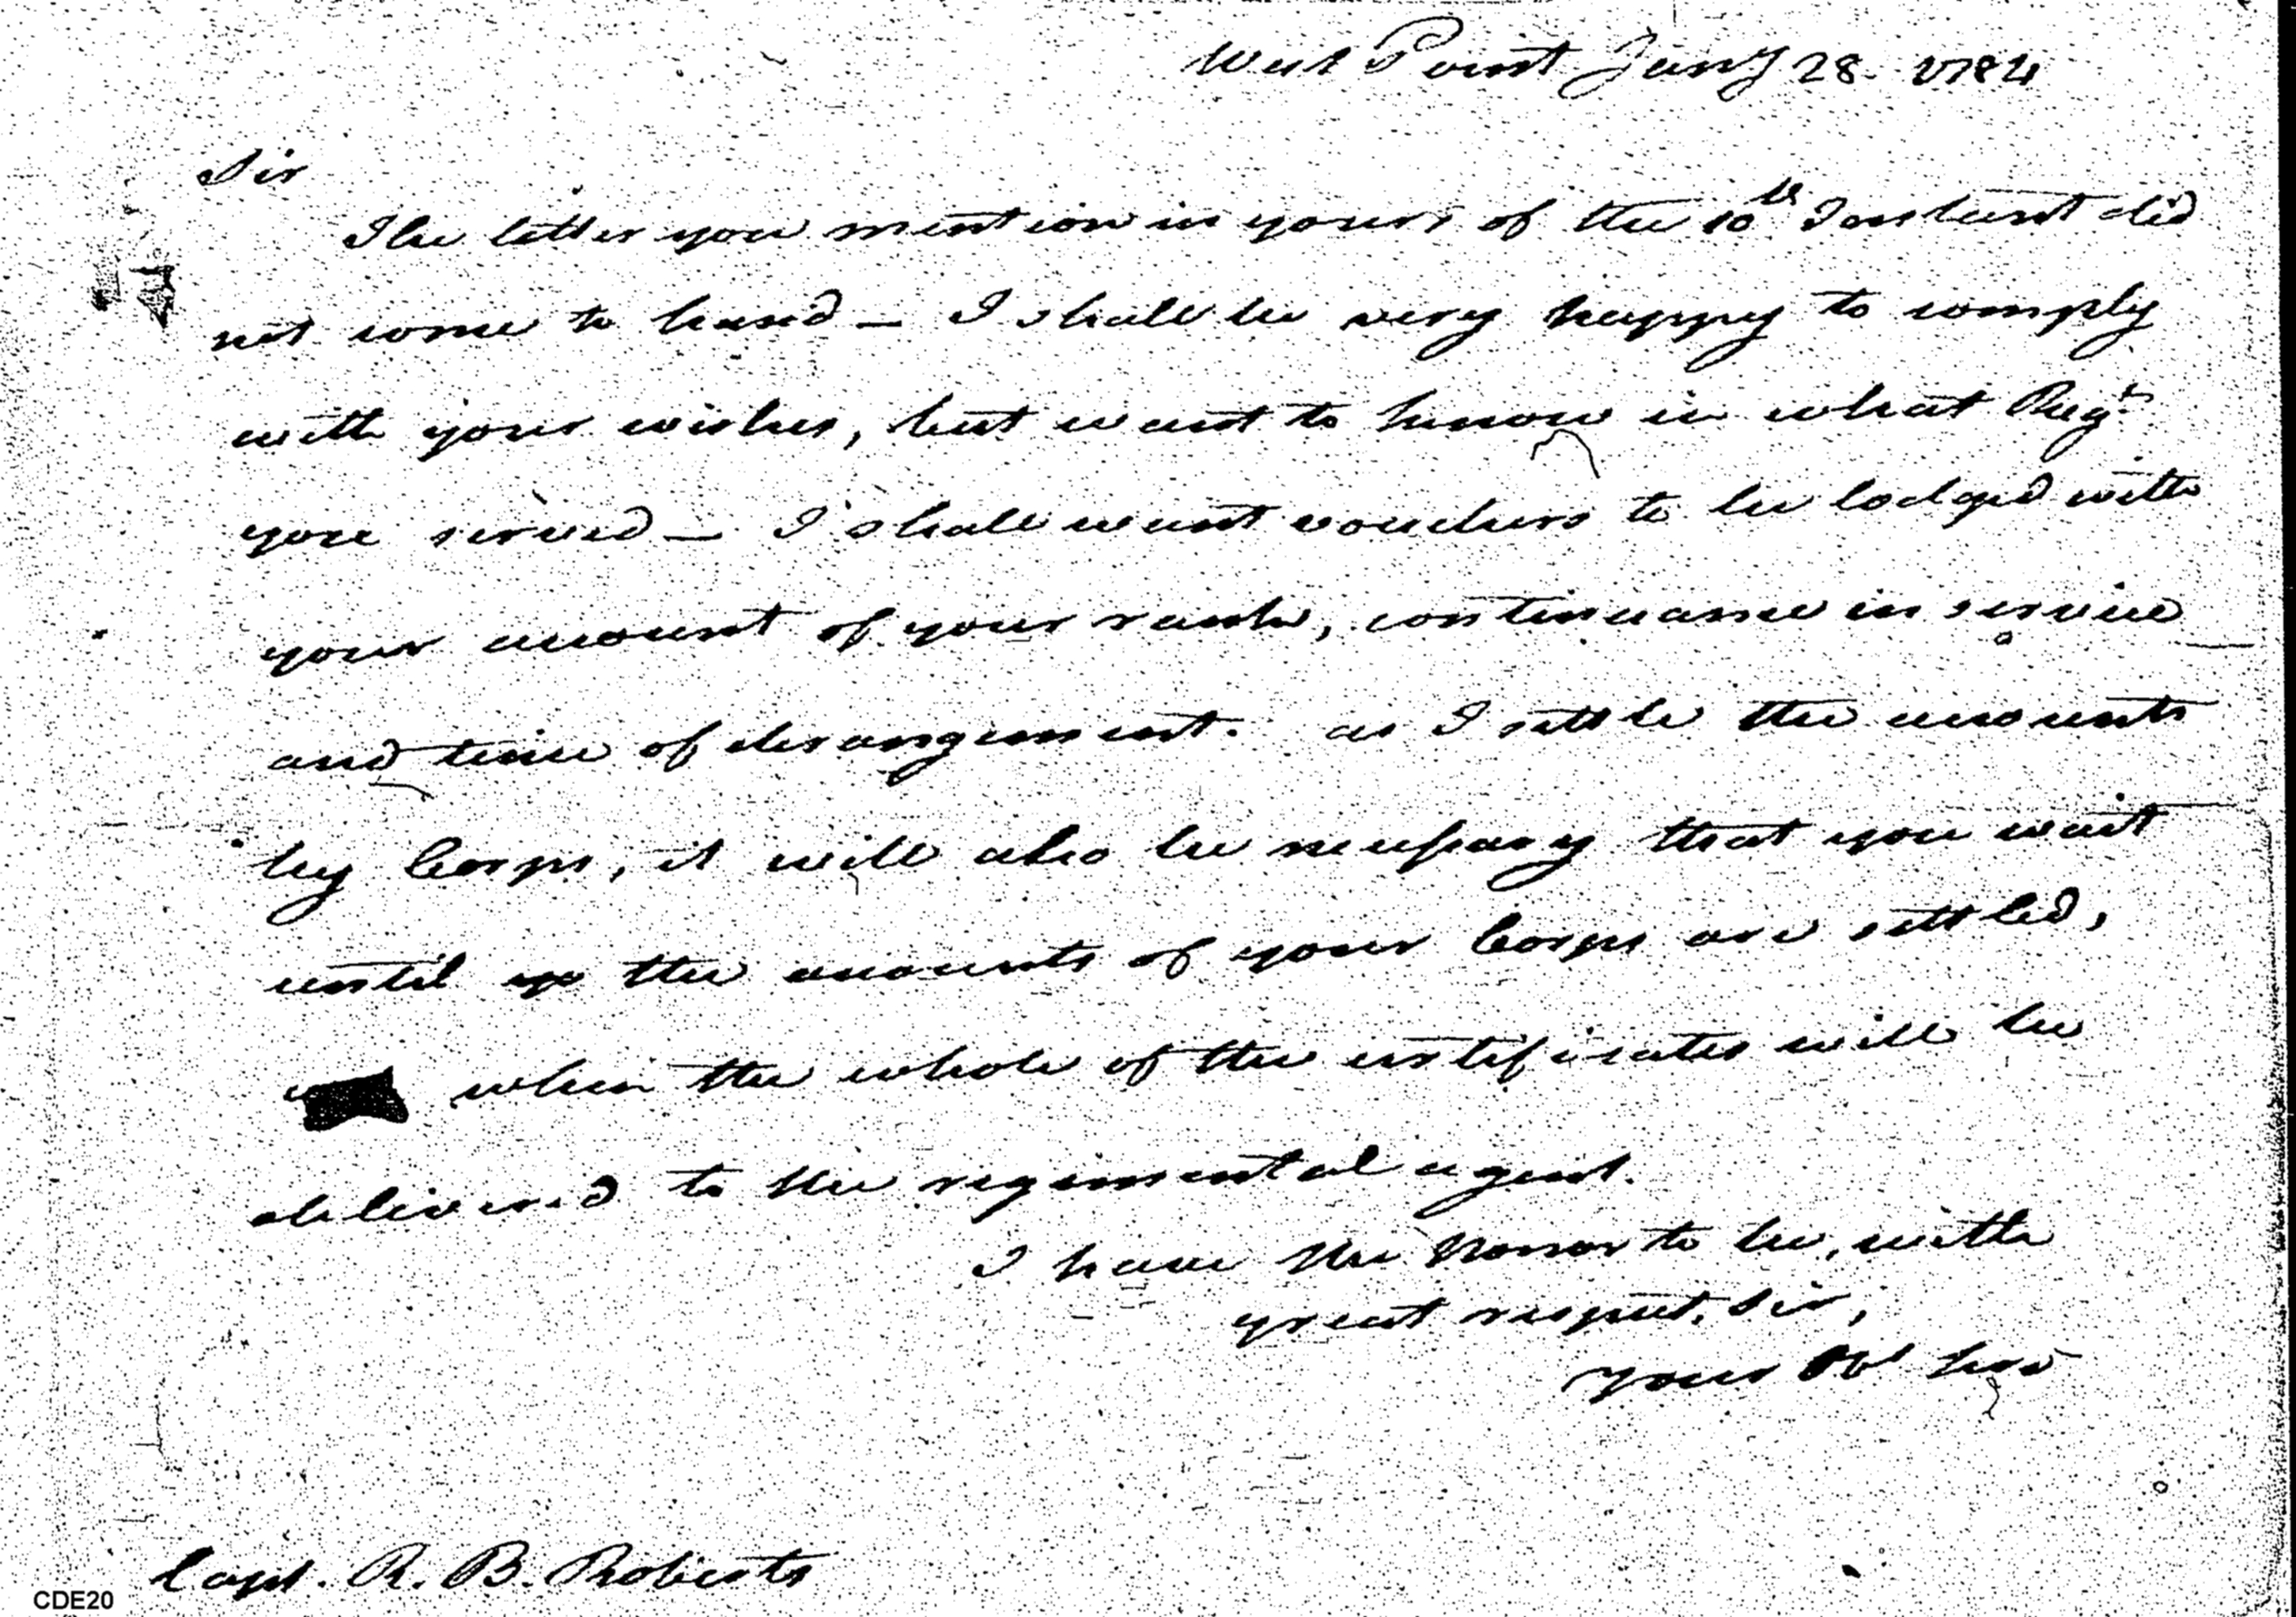 West Point Jany 28. 1784
Sir
The letter you mention in yours of the 10th Instant did
not come to hand — I shall be very happy to comply
with your wishes, but want to know in what Regt.
you served — I shall want vouchers to be lodged with
your account of your rank, continuance in service
and time of derangement. as I settle the accounts
by Corps, it will also be necessary that you wait
until the accounts of your Corps are settled,
when the whole of the certificates will be
delivered to the regimental agent.
I have the honor to be, with
great respect, Sir,
your Obt
Capt. R. B. Roberts
CDE20